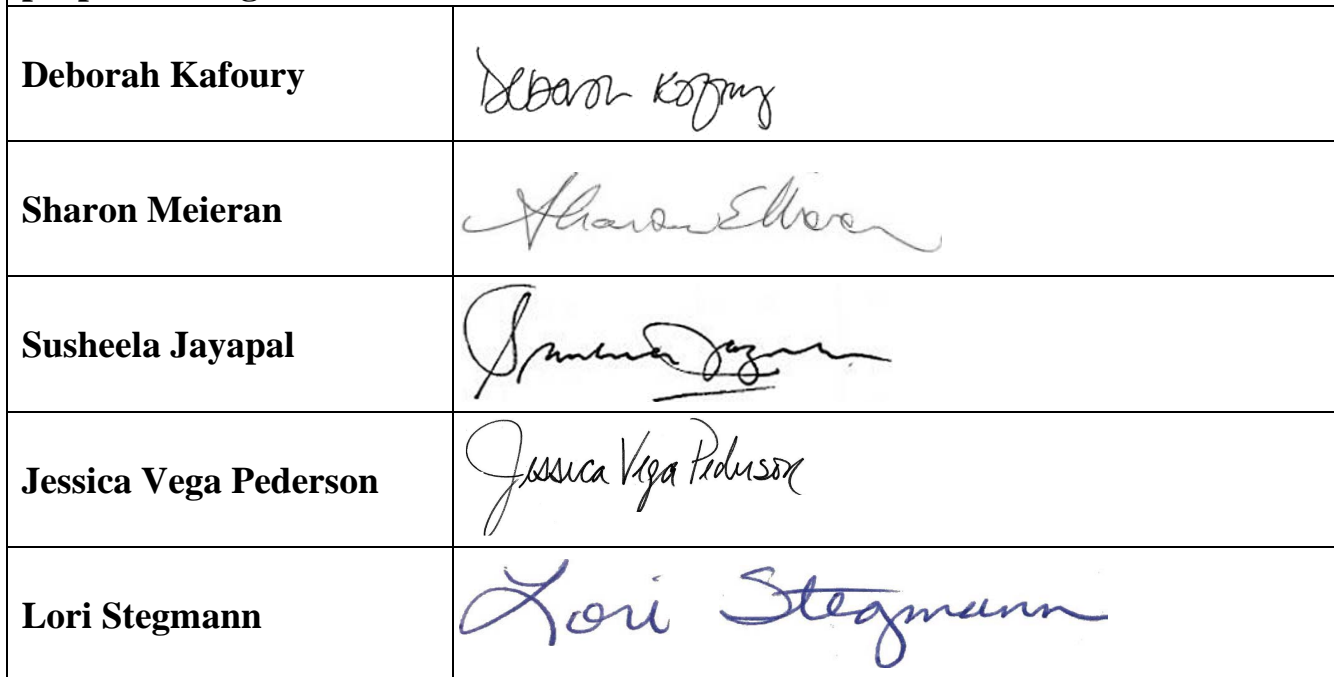 Deborah Kafoury Deborah Kafoury
Sharon Meieran Sharon
Susheela Jayapal
Jessica Vega Pederson Jessica Vega Pederson
Lori Stegmann Lori Stegmann